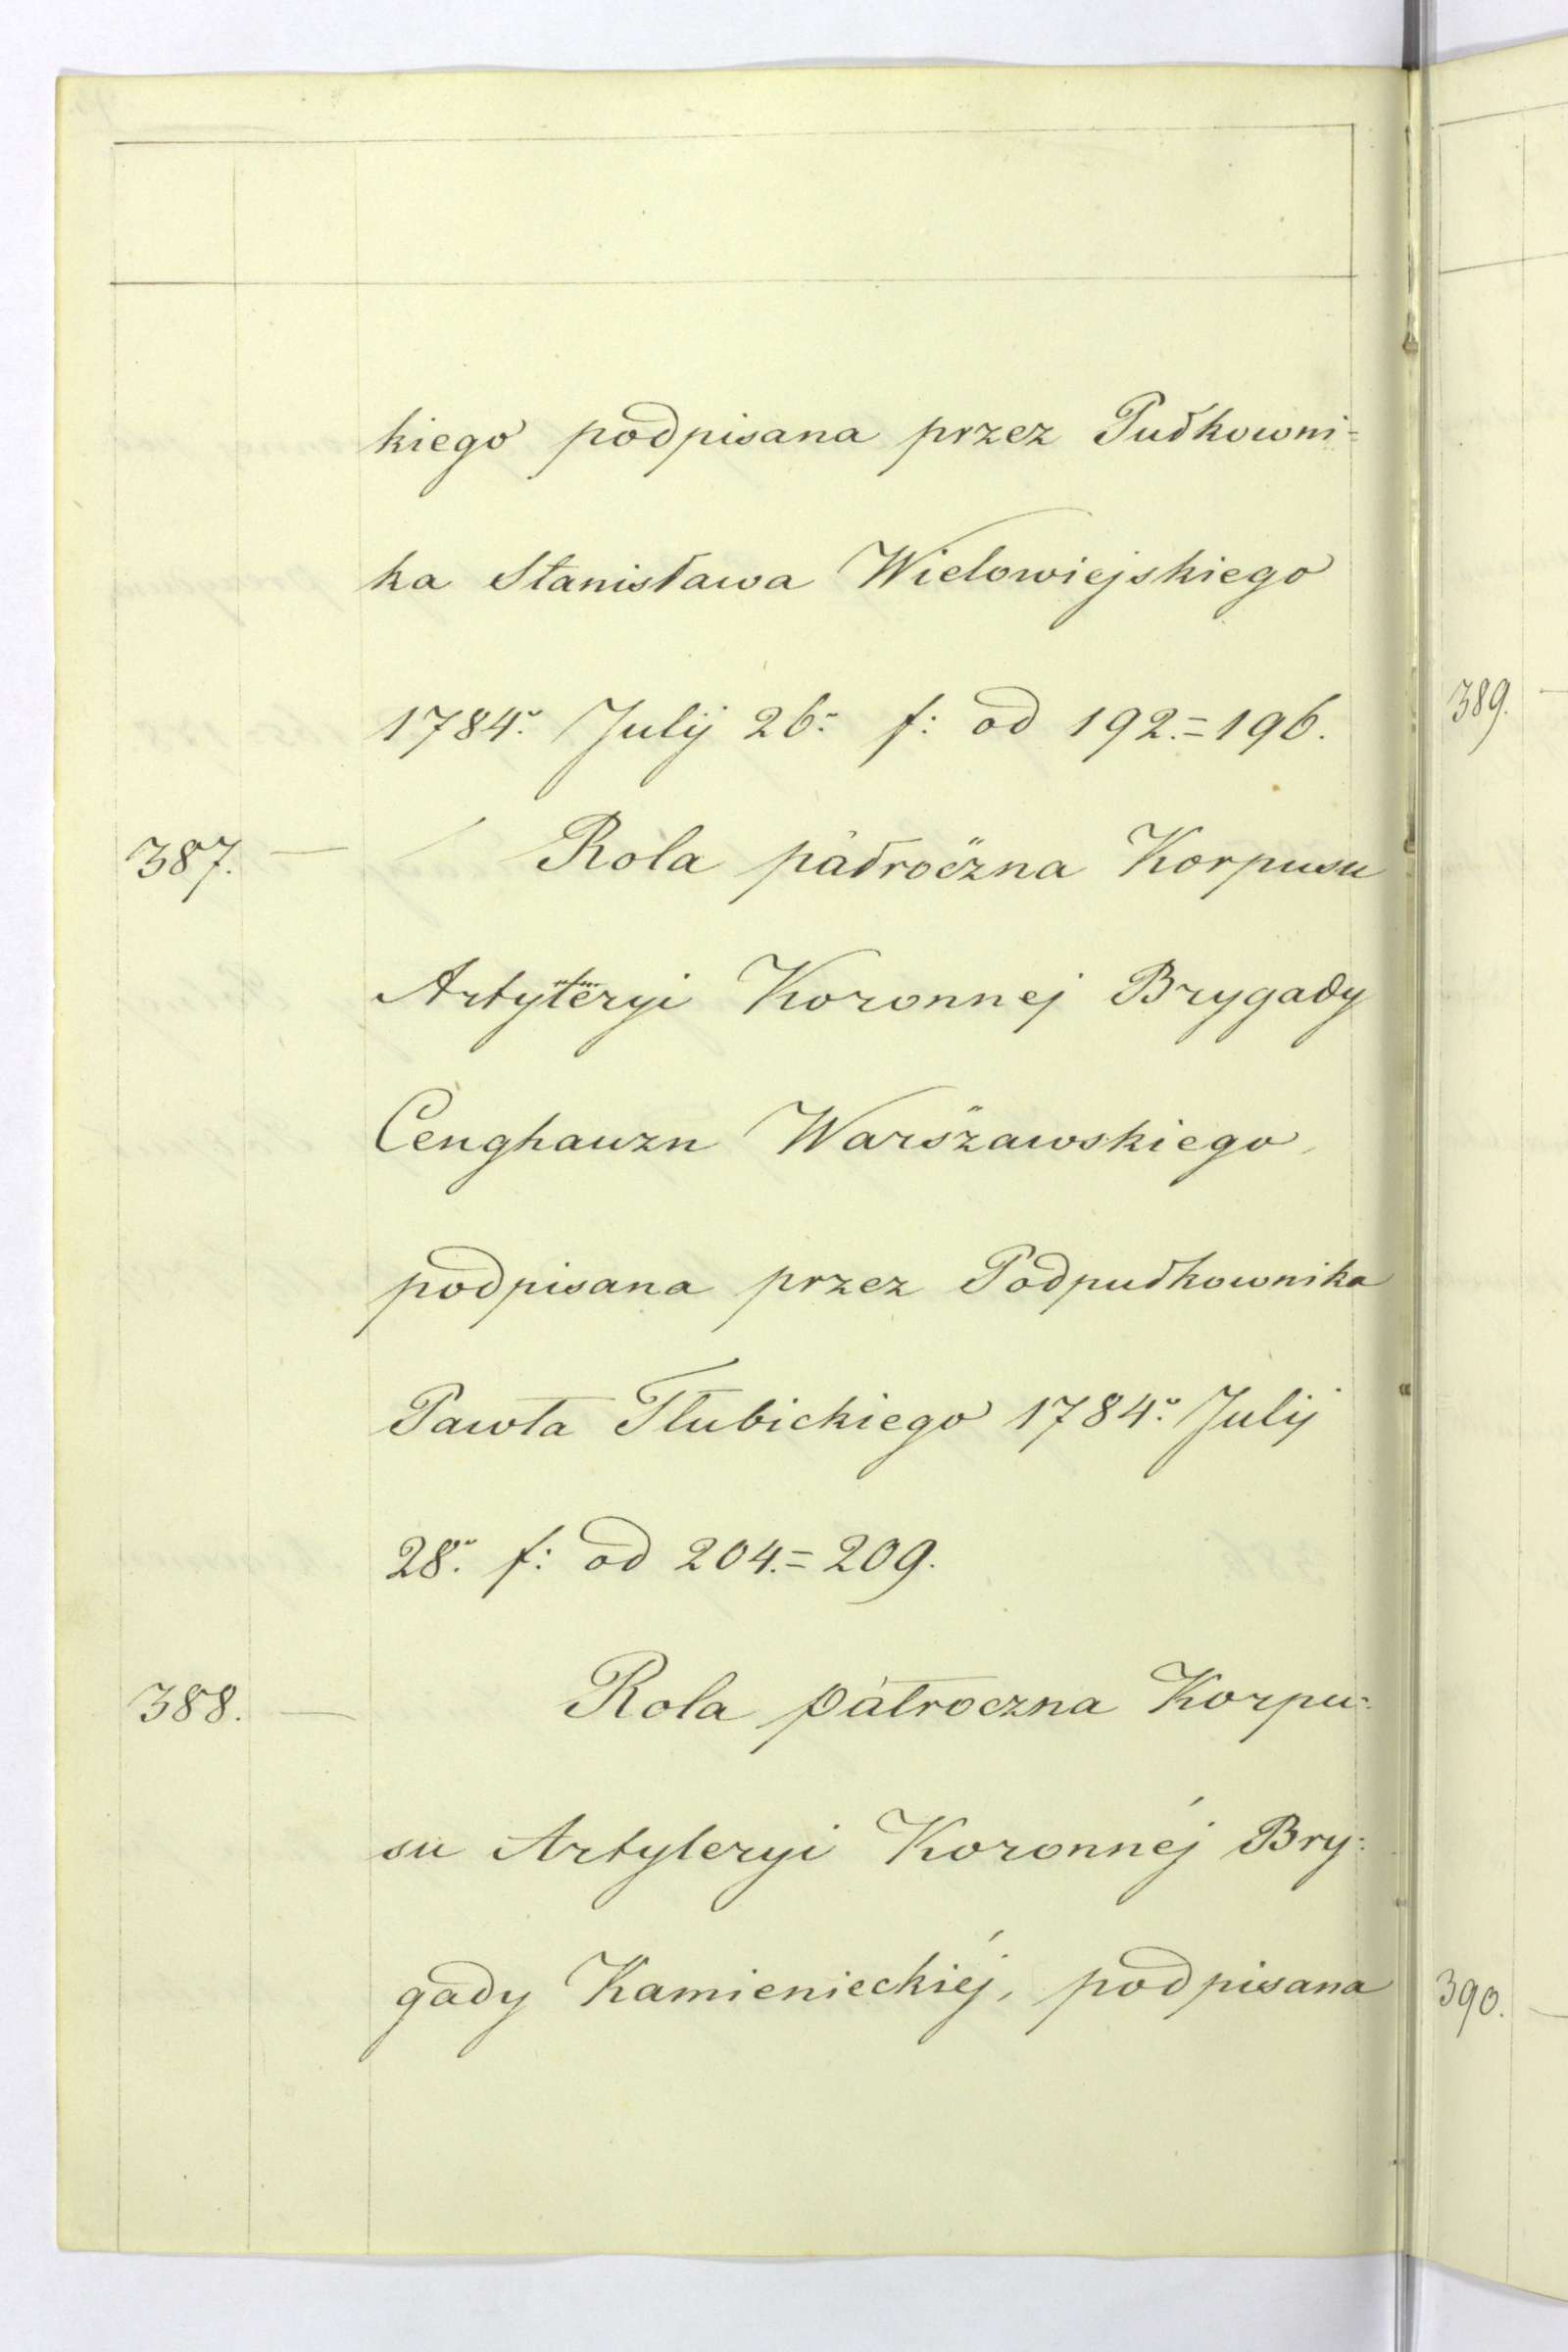 kiego podpisana przez Pułkowni=
ka Stanisława Wielowiejskiego
1784º July 26º f: od 192.=196.
387. — Rola pàłroczna Korpusu
Artyleryi Koronnej Brygady
Cenghauzn Warszawskiego,
podpisana przez Podpułkownika
Pawła Tłubickiego 1784º July
28º f: od 204.=209.
388. — Rola pàłroczna Korpu:
su Artyleryi Koronnéj Bry:
gady Kamienieckiéj, podpisana
389. —
390. —